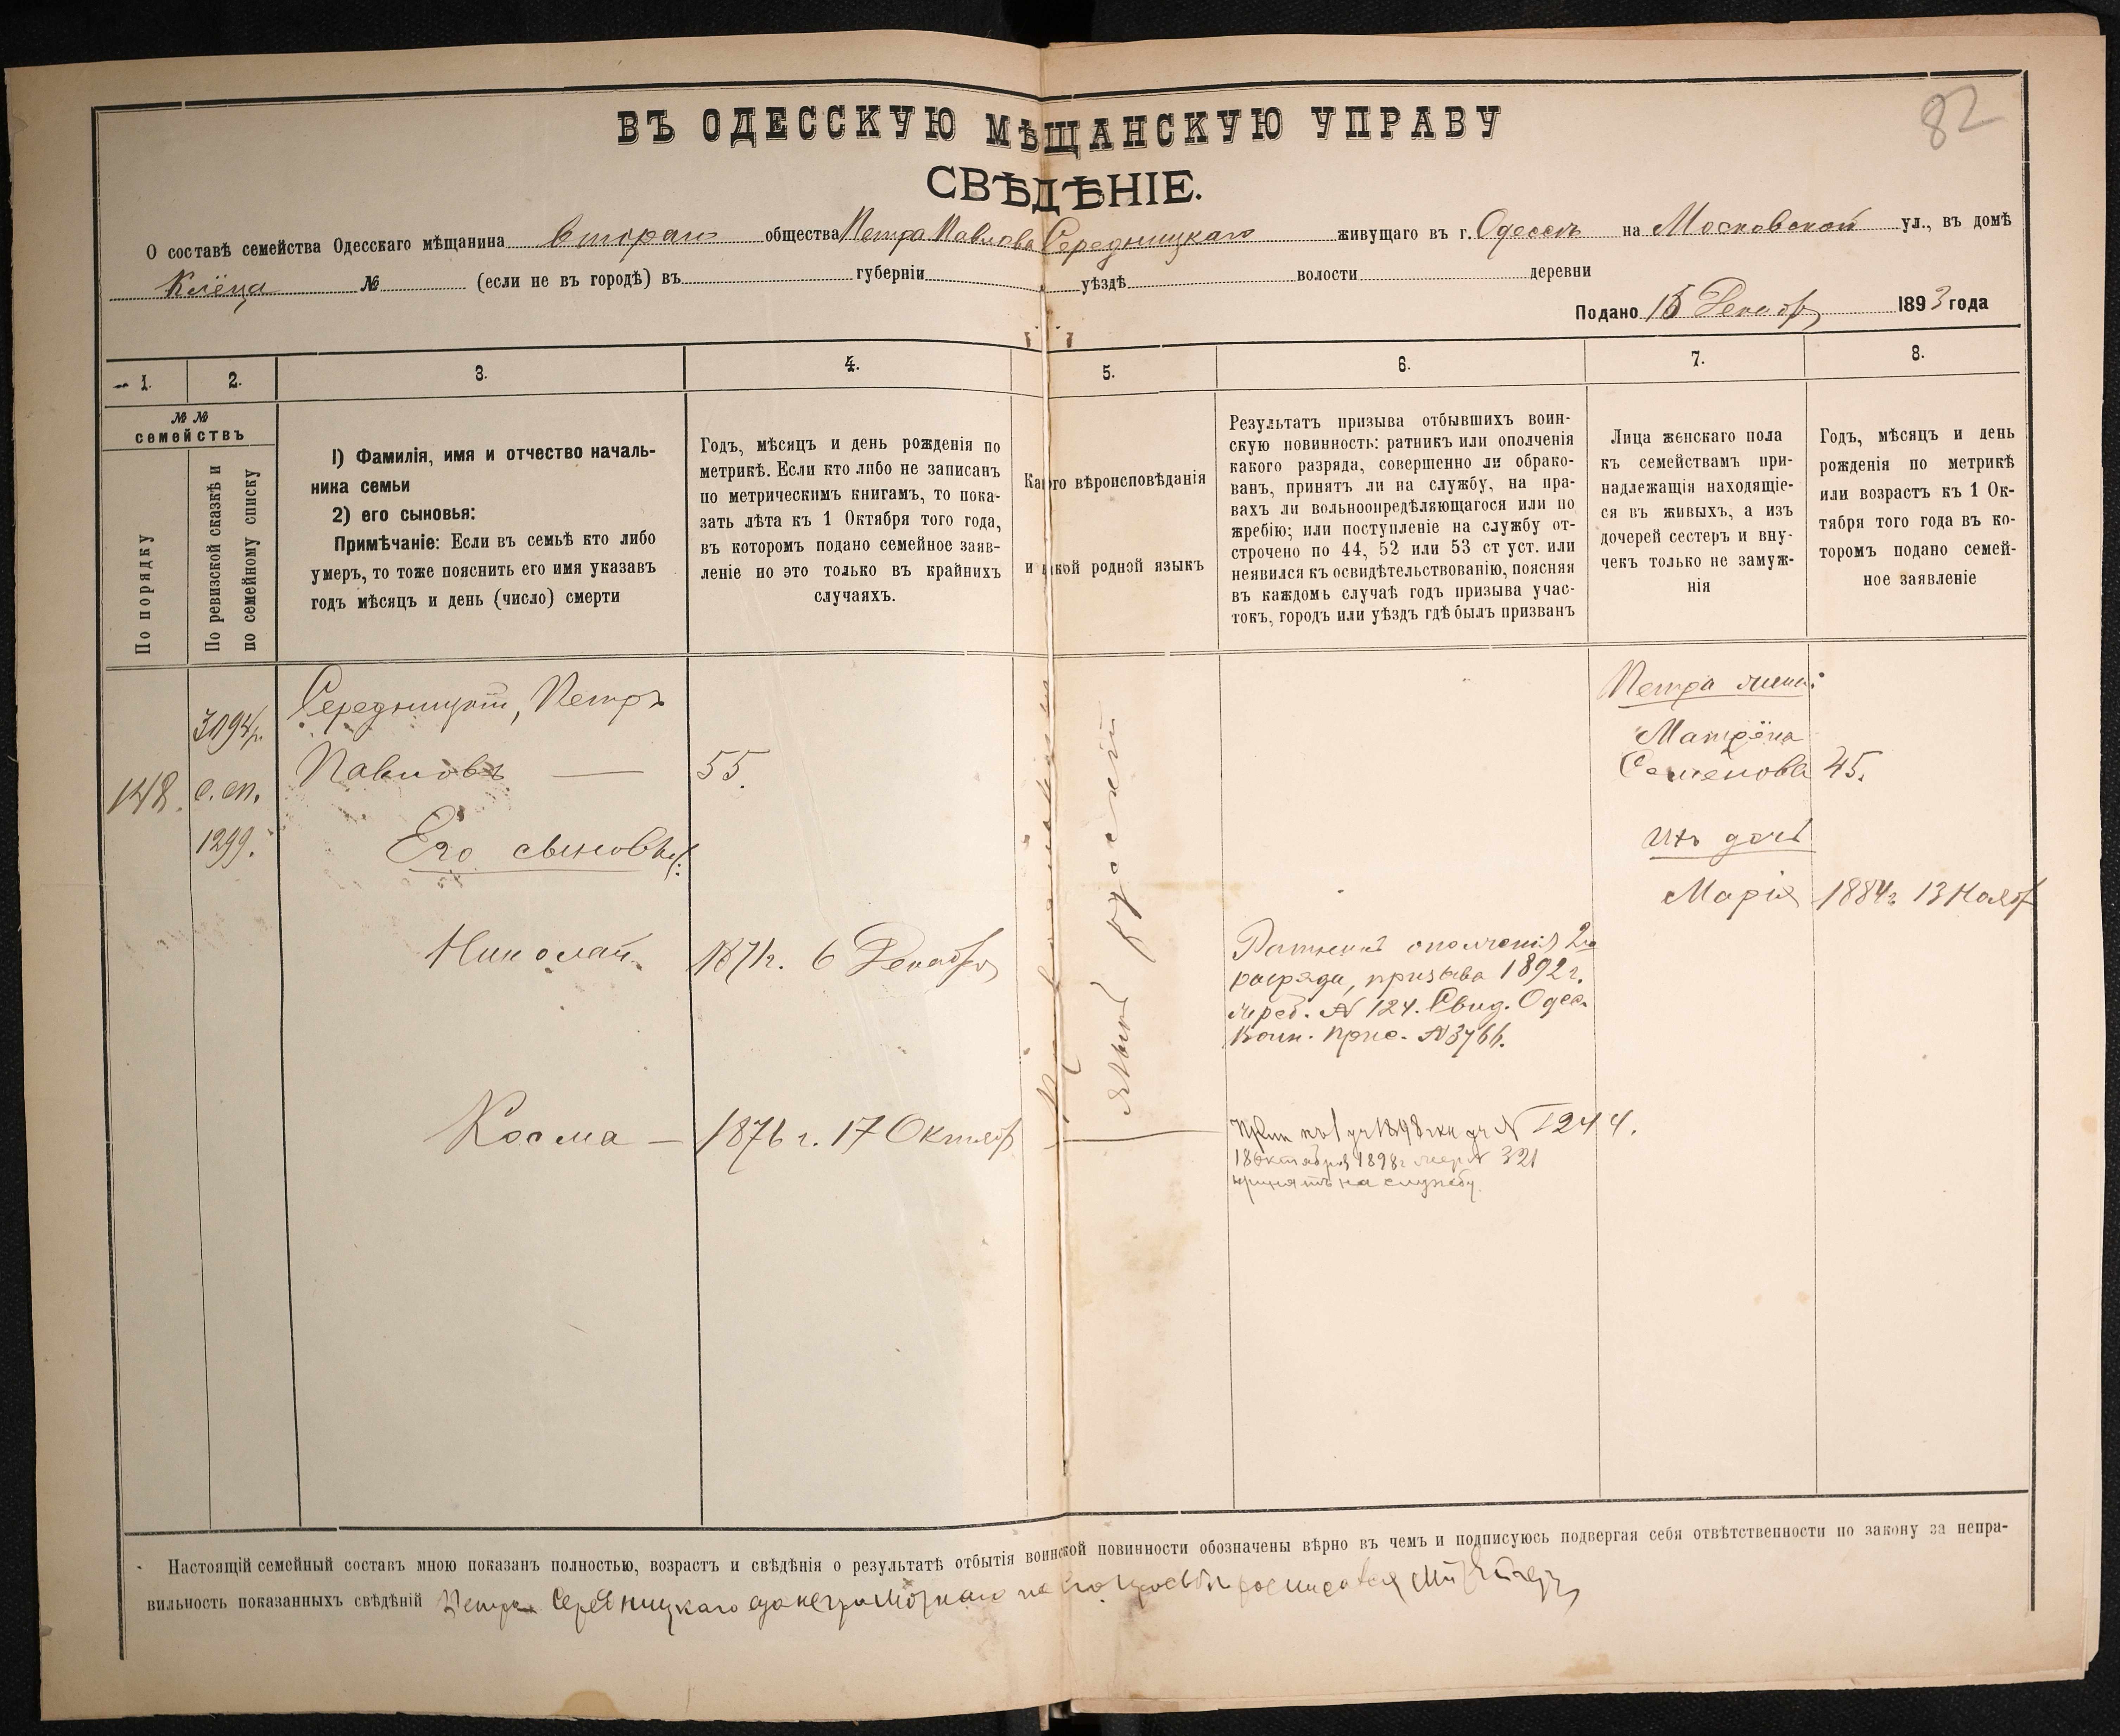 82
ВЪ ОДЕССКУЮ МѢЩАНСКУЮ УПРАВУ
СВѢДѢНІЕ.
О составѣ семейства Одесскаго мѣщанина втораго общества Петра Павлова Середницкаго живущаго въ г. Одессѣ на Московской ул., въ домѣ
№ (если не въ городѣ) въ губерніи уѣздѣ волости деревни
Подано 15 Декабр 1893 года
1. 2. 3. 4. 5. 6. 7. 8.
№ №
семействъ
По порядку
По ревизской сказкѣ и
по семейному списку
1) Фамилія, имя и отчество началь-
ника семьи
2) его сыновья:
Примѣчаніе: Если въ семьѣ кто либо
умеръ, то тоже пояснить его имя указавъ
годъ мѣсяцъ и день (число) смерти
Годъ, мѣсяцъ и день рожденія по
метрикѣ. Если кто либо не записанъ
по метрическимъ книгамъ, то пока-
зать лѣта къ 1 Октября того года,
въ которомъ подано семейное заяв-
леніе но это только въ крайнихъ
случаяхъ.
Какого вѣроисповѣданія
и какой родной языкъ
Результатъ призыва отбывшихъ воин-
скую повинность: ратникъ или ополченія
какого разряда, совершенно ли обрако-
ванъ, принятъ ли на службу, на пра-
вахъ ли вольноопредѣляющагося или по
жребію; или поступленіе на службу от-
строчено по 44, 52 или 53 ст уст. или
неявился къ освидѣтельствованію, поясняя
въ каждомъ случаѣ годъ призыва учас-
токъ, городъ или уѣздъ гдѣ былъ призванъ
Лица женскаго пола
къ семействамъ при-
надлежащія находящіе-
ся въ живыхъ, а изъ
дочерей сестеръ и вну-
чекъ только не замуж-
нія
Годъ, мѣсяцъ и день
рожденія по метрикѣ
или возрастъ къ 1 Ок-
тября того года въ ко-
торомъ подано семей-
ное заявленіе
148.
3194 р.
с. сп.
1299.
Середницкій, Петръ
Павловъ — 55.
Его сыновья:
Николай 1871 г. 6 Декабря
Косма — 1876 г. 17 Октябр
языкъ русскій
Ратникъ ополченія 2го
разряда, призыва 1892 г.
жреб. № 124. Свид. Одес.
Воин. Прис. № 3766.
№ 1244.
18 октября 1898 г. жер № 321
принятъ на службу.
Петра жена:
Матрёна
Семенова 45.
Ихъ дочь
Марія 1884 г. 13 Нояб
Настоящій семейный составъ мною показанъ полностью, возрастъ и свѣдѣнія о результатѣ отбытія воинской повинности обозначены вѣрно въ чемъ и подписуюсь подвергая себя отвѣтственности по закону за непра-
вильность показанныхъ свѣдѣній Петра Середницкаго а за неграмотнаго по его просьбѣ росписался